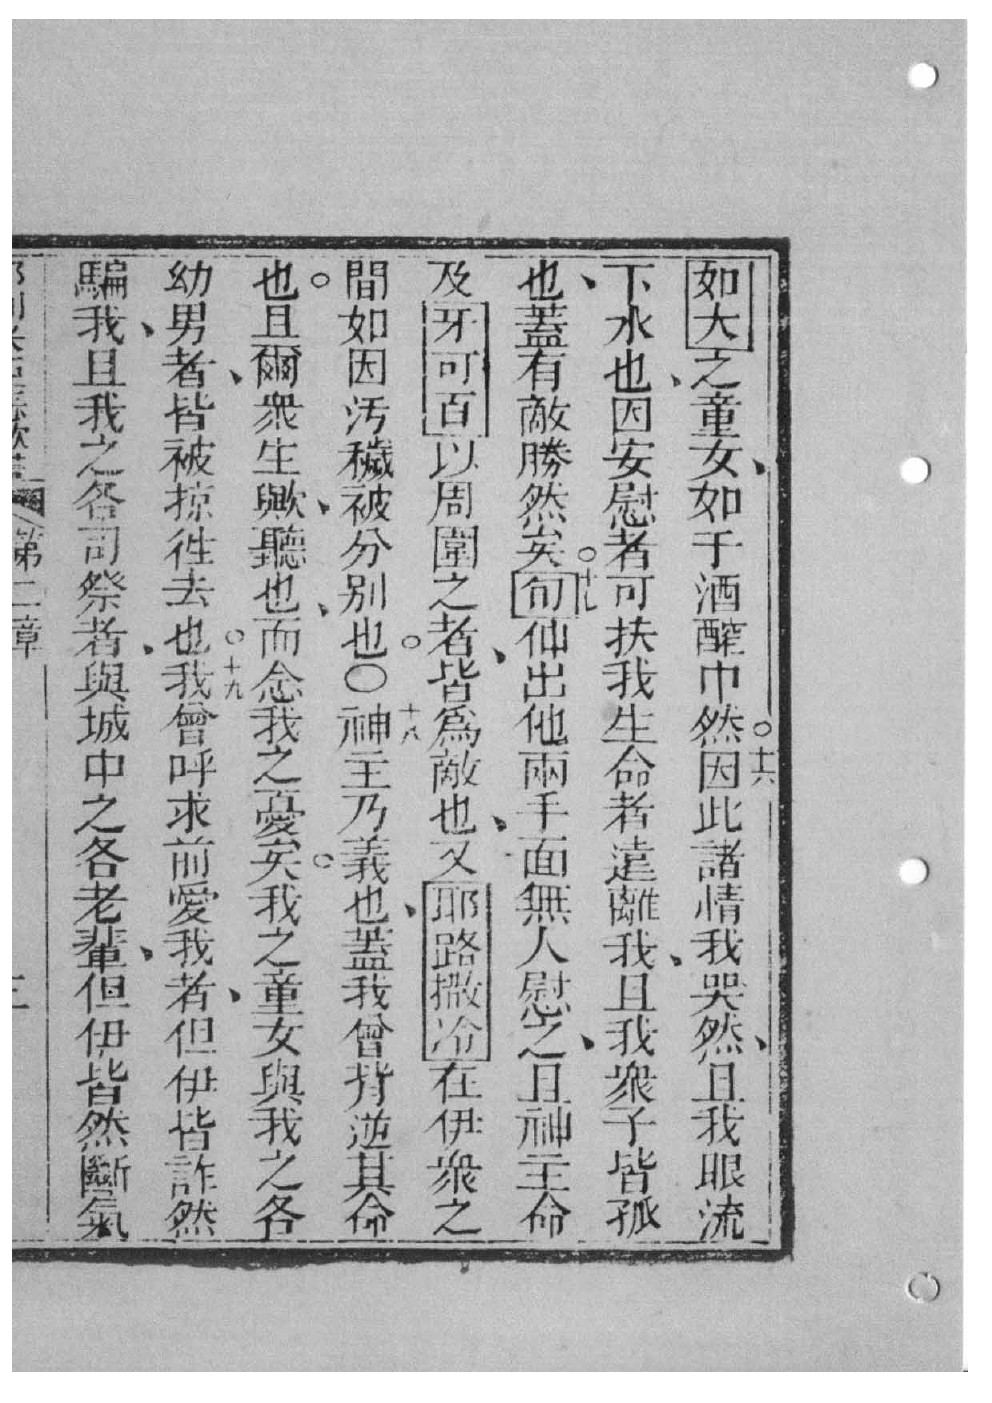 如大之童女、如于酒醡巾然。十六因此諸情我哭然、且我眼流
下水也、因安慰者可扶我生命者遠離我、且我衆子皆孤
也、蓋有敵勝然矣。十七旬仙出他兩手面無人慰之、且神主命
及牙可百以周圍之者、皆爲敵也、又耶路撒冷在伊衆之
間如因汚穢被分别也。○十八神主乃義也、蓋我曾背逆其命
也。且爾衆生歟、聽也、而念我之憂矣。我之童女與我之各
幼男者、皆被掠徃去也。十九我曾呼求前愛我者、但伊皆詐然
騙我、且我之各司祭者、與城中之各老輩、但伊皆然斷氣
第二章
三